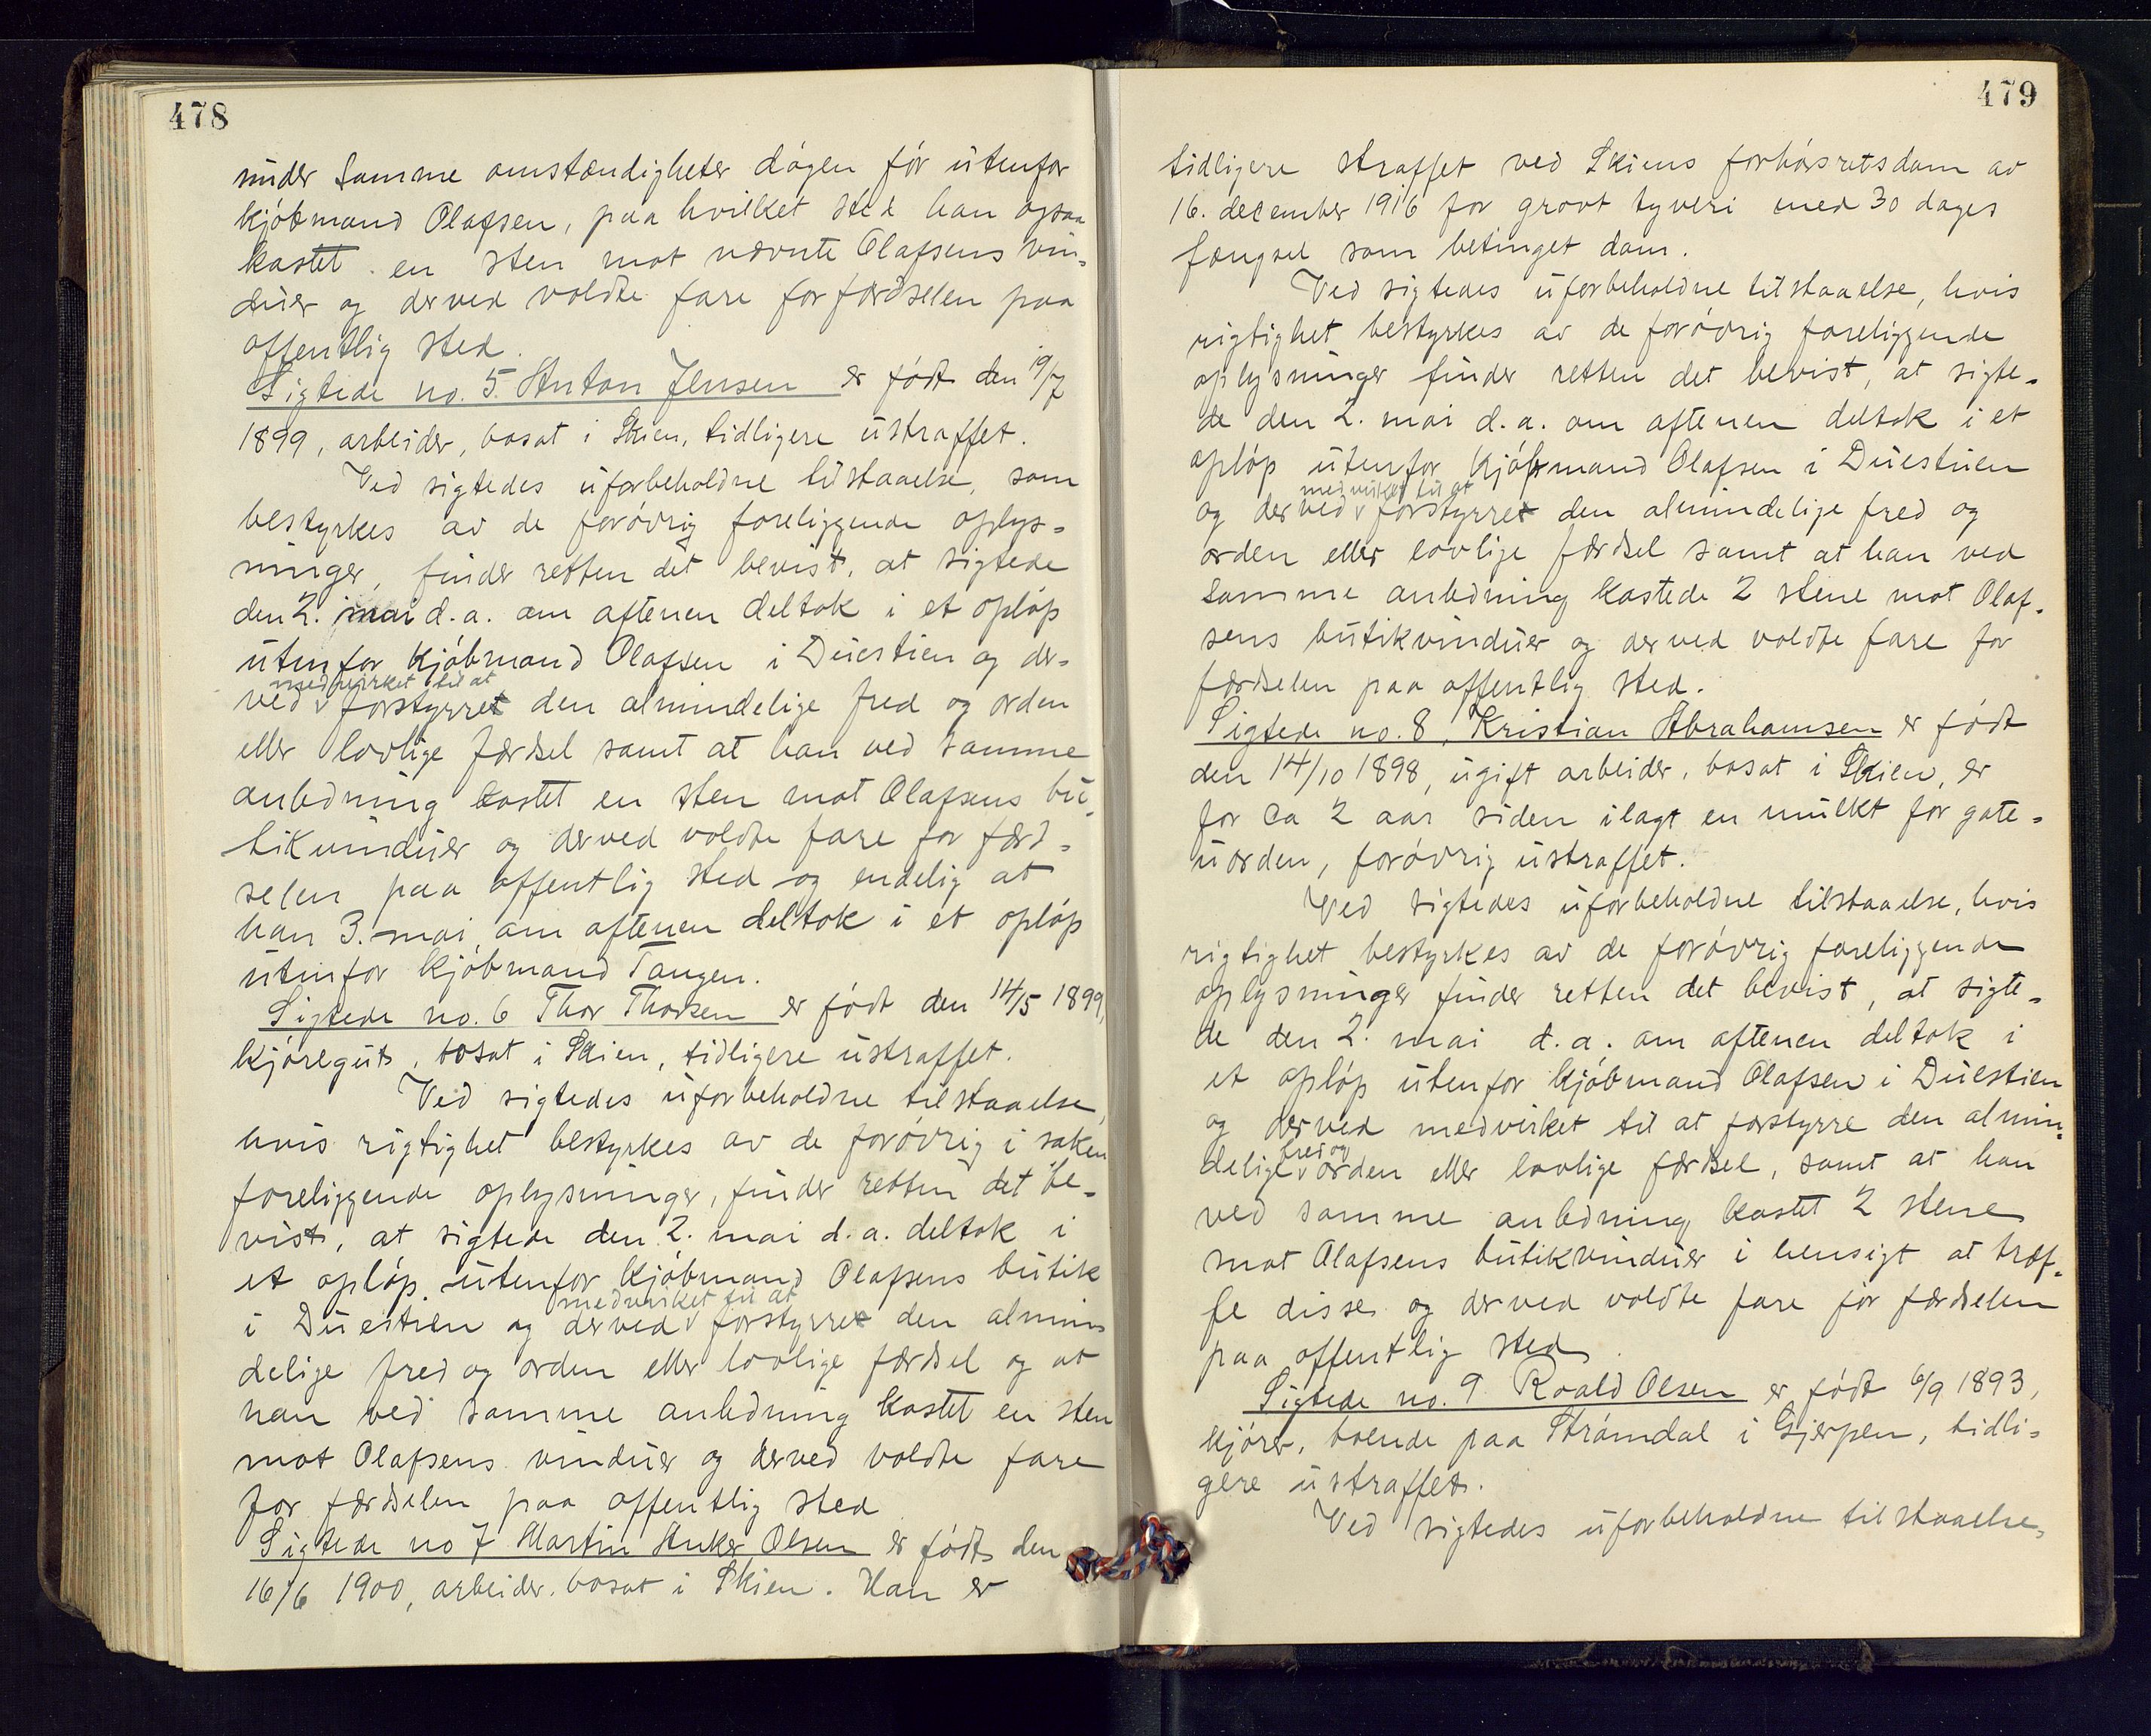 478
under samme omstændigheter dagen før utenfor
kjøbmand Olafsen, paa hvilket sted han ogsaa
kastet en sten mot nævnte Olafsens vin-
duer og derved voldte fare for færdselen paa
offentlig sted.
Sigtede no. 5. Anton Jensen er født den 19/7
1899, arbeider, bosat i Skien, tidligere ustraffet.
Ved sigtedes uforbeholdne tilstaaelse, som
bestyrkes av de forøvrig foreliggende oplys-
ninger, finder retten det bevist, at sigtede
den 2. mai d.a. om aftenen deltok i et opløp
utenfor kjøbmand Olafsen i Duestien og der-
medvirket til at
ved forstyrret den almindelige fred og orden
eller lovlige færdsel samt at han ved samme
anledning kastet en sten mot Olafsens bu-
tikvinduer og derved voldte fare for færd-
selen paa offentlig sted og endelig at
han 3. mai om aftenen deltok i et opløp
utenfor kjøbmand Tangen.
Sigtede no. 6 Thor Thorsen er født den 14/5 1899,
kjøregut, bosat i Skien, tidligere ustraffet.
Ved sigtedes uforbeholdne tilstaaelse,
hvis rigtighet bestyrkes av de forøvrig i saken
foreliggende oplysninger, finder retten det be-
vist, at sigtede den 2. mai d.a. deltok i
et opløp utenfor kjøbmand Olafsens butik
medvirket til at
i Duestien og derved forstyrret den almin-
delige fred og orden eller lovlige færdsel og at
han ved samme anledning kastet en sten
mot Olafsens vinduer og derved voldte fare
for færdselen paa offentlig sted
Sigtede no 7 Martin Anker Olsen er født den
16/6 1900, arbeider, bosat i Skien. Han er
479
tidligere straffet ved Skiens forhørsretsdom av
16. december 1916 for grovt tyveri med 30 dages
fængsel som betinget dom.
Ved sigtedes uforbeholdne tilstaaelse, hvis
rigtighet bestyrkes av de forøvrig foreliggende
oplysninger finder retten det bevist, at sigte-
de den 2. mai d.a. om aftenen deltok i et
opløp utenfor kjøbmand Olafsen i Duestuen
medvirket til at
og derved forstyrret den almindelige fred og
orden eller lovlige færdsel samt at han ved
samme anledning kastede 2 stene mot Olaf-
sens butikvinduer og derved voldte fare for
færdselen paa offentlig sted.
Sigtede no. 8, Kristian Abrahamsen er født
den 14/10 1898, ugift arbeider, bosat i Skien, er
for ca 2 aar siden ilagt en mulkt for gate-
uorden, forøvrig ustraffet.
Ved sigtedes uforbeholdne tilstaaelse, hvis
rigtighet bestyrkes av de forøvrig foreliggende
oplysninger finder retten det bevist, at sigte-
de den 2. mai d.a. om aftenen deltok i
et opløp utenfor kjøbmand Olafsen i Duestien
og derved medvirket til at forstyrre den almin-
fred og
delige orden eller lovlige færdsel, samt at han
ved samme anledning kastet 2 stene
mot Olafsens butikvinduer i hensigt at træf-
fe disse og derved voldte fare for færdselen
paa offentlig sted.
Sigtede no. 9 Roald Olsen er født 6/9 1893,
kjører, boende paa Strømdal i Gjerpen, tidli-
gere ustraffet.
Ved sigtedes uforbeholdne tilstaaelse,